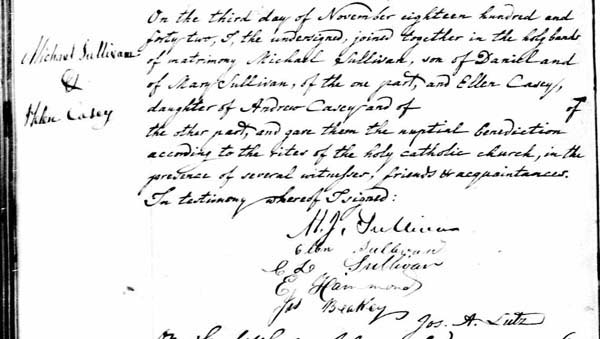 Michael Sullivan
&
Helen Casey
On the third day of November eighteen hundred and
forty two, I, the undersigned, joined together in the holy bands
of matrimony Michael Sullivan, son of Daniel and
of Mary Sullivan, of the one part, and Ellen Casey,
daughter of Andrew Casey and of of
the other part, and gave them the nuptial benediction
according to the rites of the holy catholic church, in the
presence of several witnesses, friends & acquaintances.
In testimony whereof I signed:
M. J. Sullivan
Ellen Sullivan
C D Sullivan
E Hammond
Jas Beakey
Jos. A. Lutz